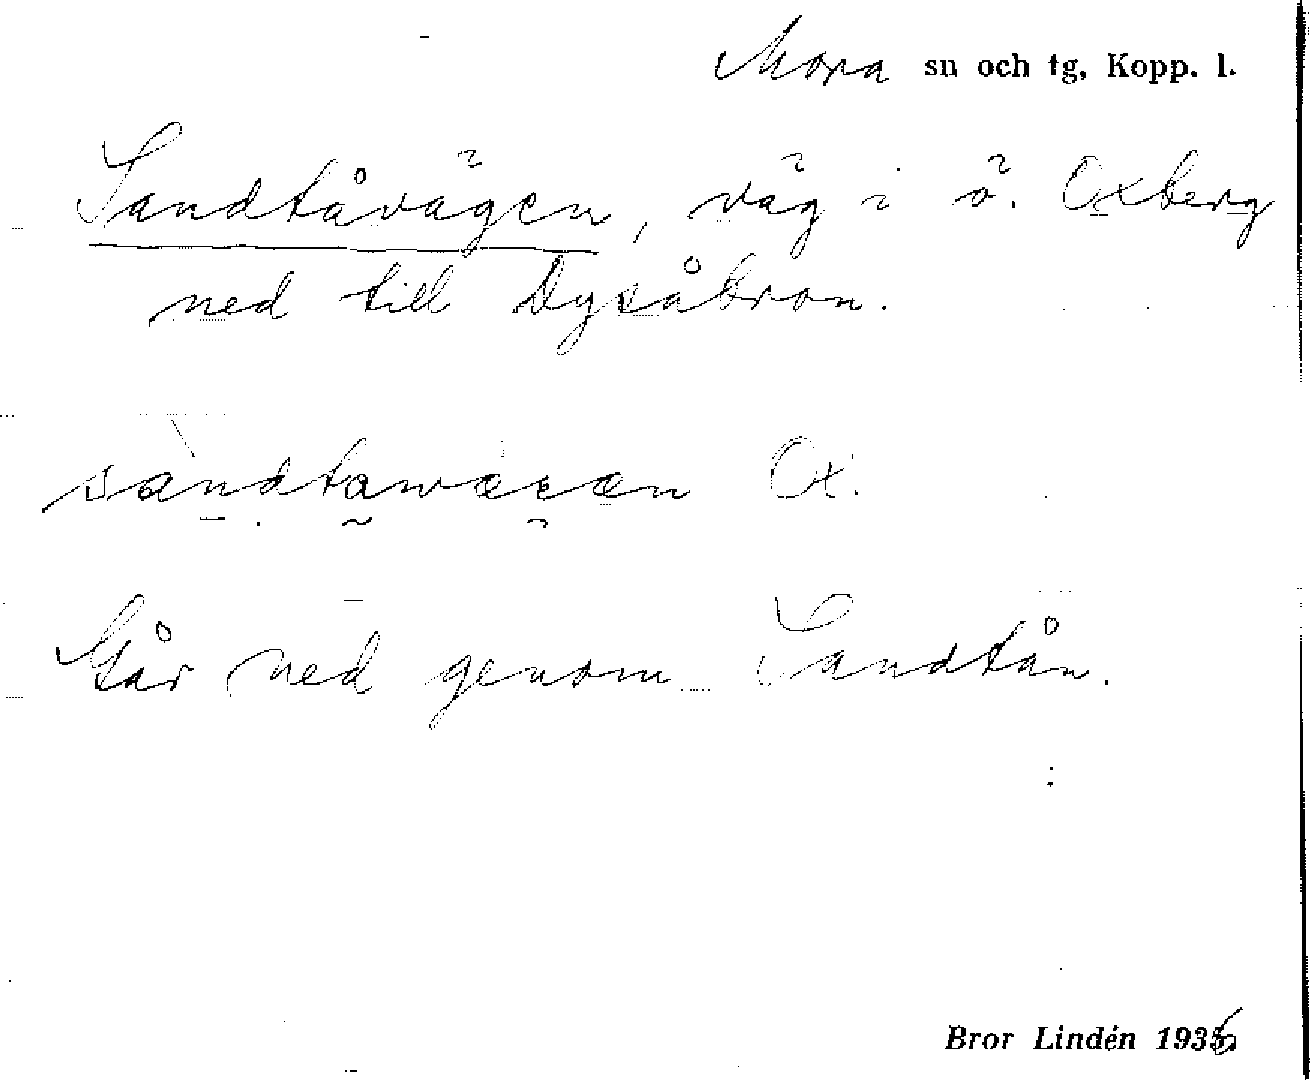 Mora sn och tg, Kopp. l.
Sandtåvägen, väg i ö. Oxberg
ned till Dysåbron.
sandtawæгæn Ox.
Går ned genom Sandtån.
Bror Lindén 1936